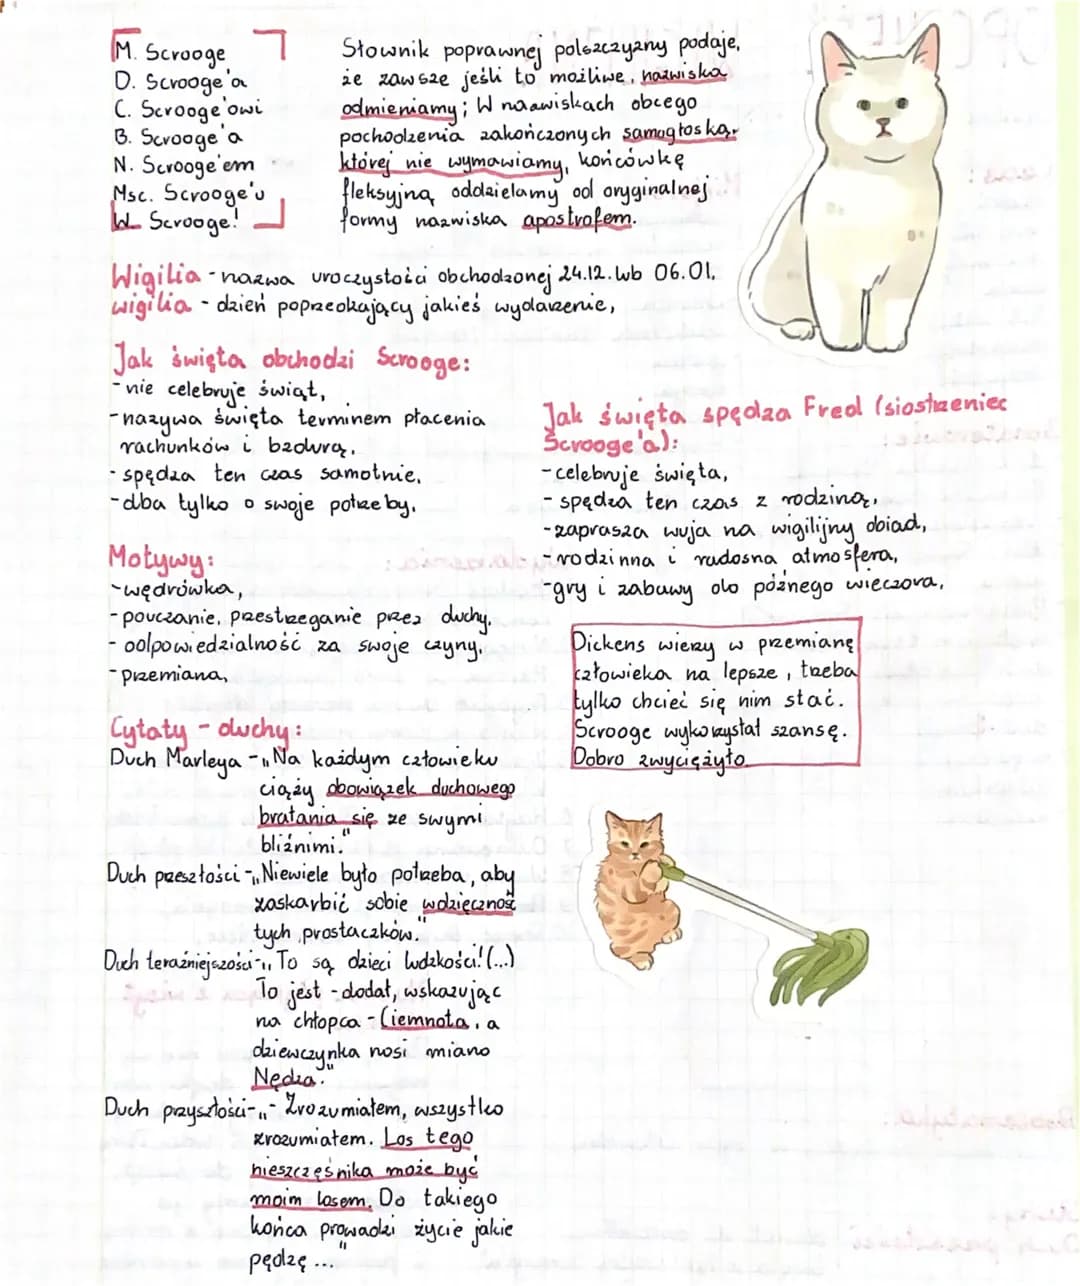 M. Scrooge
D. Scrooge'a
C. Scrooge'owi
B. Scrooge'a
N. Scrooge'em
Msc. Scrooge'u
W. Scrooge!
Słownik poprawnej polszczyzny podaje,
że zawsze jeśli to możliwe, nazwiska
odmieniamy; W nazwiskach obcego
pochodzenia zakończonych samogłoską,
której nie wymawiamy, końcówkę
fleksyjną oddzielamy od oryginalnej
formy nazwiska apostrofem.
Wigilia - nazwa uroczystości obchodzonej 24.12. lub 06.01.
wigilia - dzień poprzedzający jakieś wydarzenie,
Jak święta obchodzi Scrooge:
- nie celebruje świąt,
- nazywa święta terminem płacenia
rachunków i bzdurą,
- spędza ten czas samotnie,
- dba tylko o swoje potrzeby.
Jak święta spędza Fred (siostrzeniec
Scrooge'a):
- celebruje święta,
- spędza ten czas z rodziną,
- zaprasza wuja na wigilijny obiad,
- rodzinna i radosna atmosfera,
- gry i zabawy do późnego wieczora.
Motywy:
- wędrówka,
- pouczanie, przestrzeganie przez duchy,
- odpowiedzialność za swoje czyny,
- przemiana,
Dickens wierzy w przemianę
człowieka na lepsze, trzeba
tylko chcieć się nim stać.
Scrooge wykorzystał szansę.
Dobro zwyciężyło.
Cytaty - duchy:
Duch Marleya - „Na każdym człowieku
ciąży obowiązek duchowego
bratania się ze swymi
bliźnimi."
Duch przeszłości - „Niewiele było potrzeba, aby
zaskarbić sobie wdzięczność
tych prostaczków."
Duch teraźniejszości - „To są dzieci ludzkości! (...)
To jest - dodał, wskazując
na chłopca - Ciemnota, a
dziewczynka nosi miano
Nędza."
Duch przyszłości - „- Zrozumiałem, wszystko
zrozumiałem. Los tego
nieszczęśnika może być
moim losem. Do takiego
końca prowadzi życie jakie
pędzę ..."